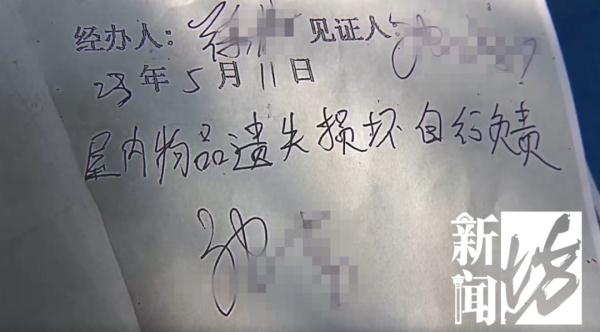 经办人: 见证人:
23年5月11日
屋内物品遗失损坏自行负责
新闻坊